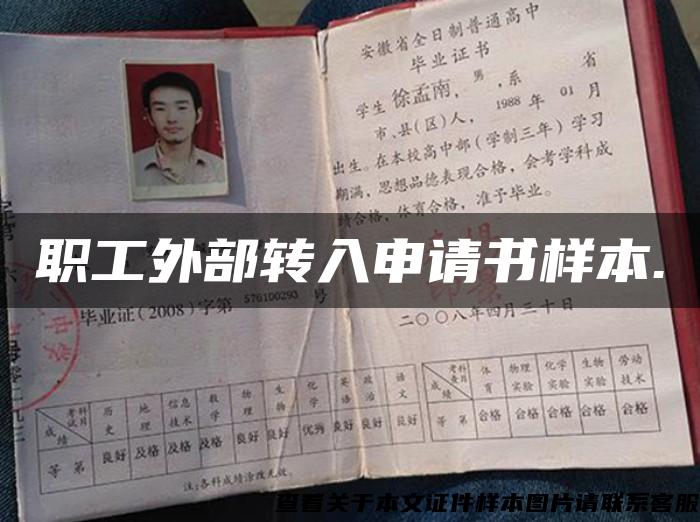 安徽省全日制普通高中
毕业证书
学生 徐孟南，男，系 省
市、县(区)人，1988 年 01 月
出生。在本校高中部(学制三年)学习
期满，思想品德表现合格，会考学科成
绩合格，体育合格，准予毕业。
职工外部转入申请书样本.
毕业证(2008)字第 576100293 号
二〇〇八年四月三十日
成绩 考试科目 历史 地理 信息技术 数学 物理 生物 化学 英语 政治 语文
等第 良好 及格 及格 及格 良好 良好 优秀 良好 良好 良好
注:各科成绩涂改无效。
成绩 考查科目 体育 物理实验 化学实验 生物实验 劳动技术
等第 合格 合格 合格 合格 合格
查看关于本文证件样本图片请联系客服